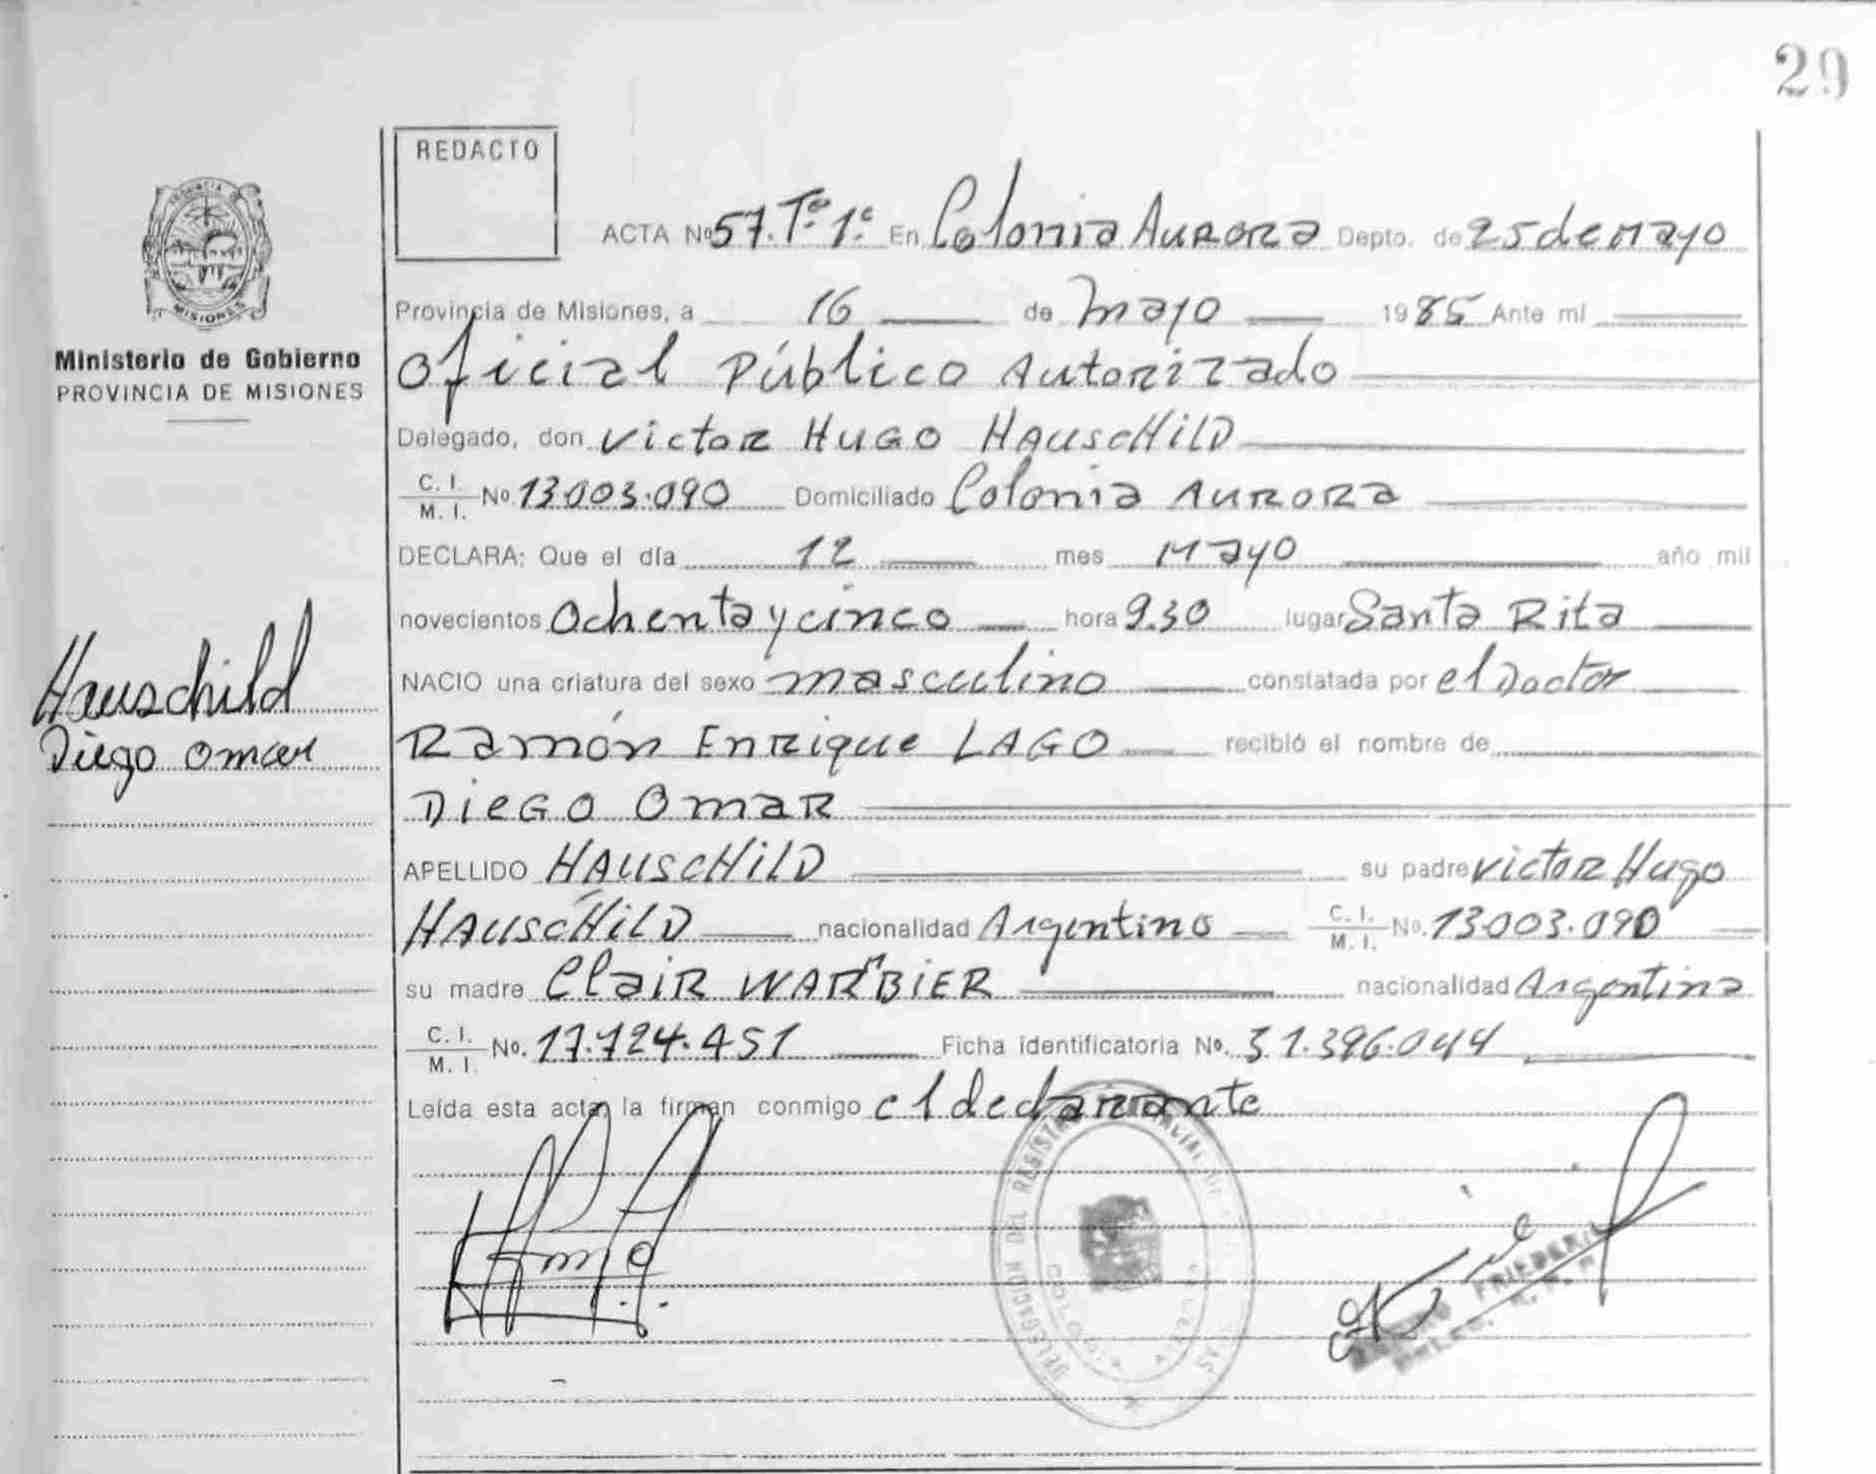 29
REDACTO
ACTA Nº 57.Tº 1º En Colonia Aurora Depto. de 25 de Mayo
Provincia de Misiones, a 16 de mayo 1985 Ante mí
Oficial Público Autorizado
Delegado, don Victor Hugo Hauschild
C. I. M. I. Nº 13.003.090 Domiciliado Colonia Aurora
DECLARA: Que el día 12 mes Mayo año mil
novecientos Ochenta y cinco hora 9.30 lugar Santa Rita
NACIO una criatura del sexo masculino constatada por el Doctor
Ramón Enrique LAGO recibió el nombre de
Diego Omar
APELLIDO HAUSCHILD su padre Victor Hugo
HAUSCHILD nacionalidad Argentino C. I. M. I. Nº. 13.003.090
su madre Clair WARMBIER nacionalidad Argentina
C. I. M. I. Nº. 17.724.451 Ficha identificatoria Nº. 31.396.044
Leída esta acta, la firman conmigo el declarante
MISIONES
Ministerio de Gobierno
PROVINCIA DE MISIONES
Hauschild
Diego Omar